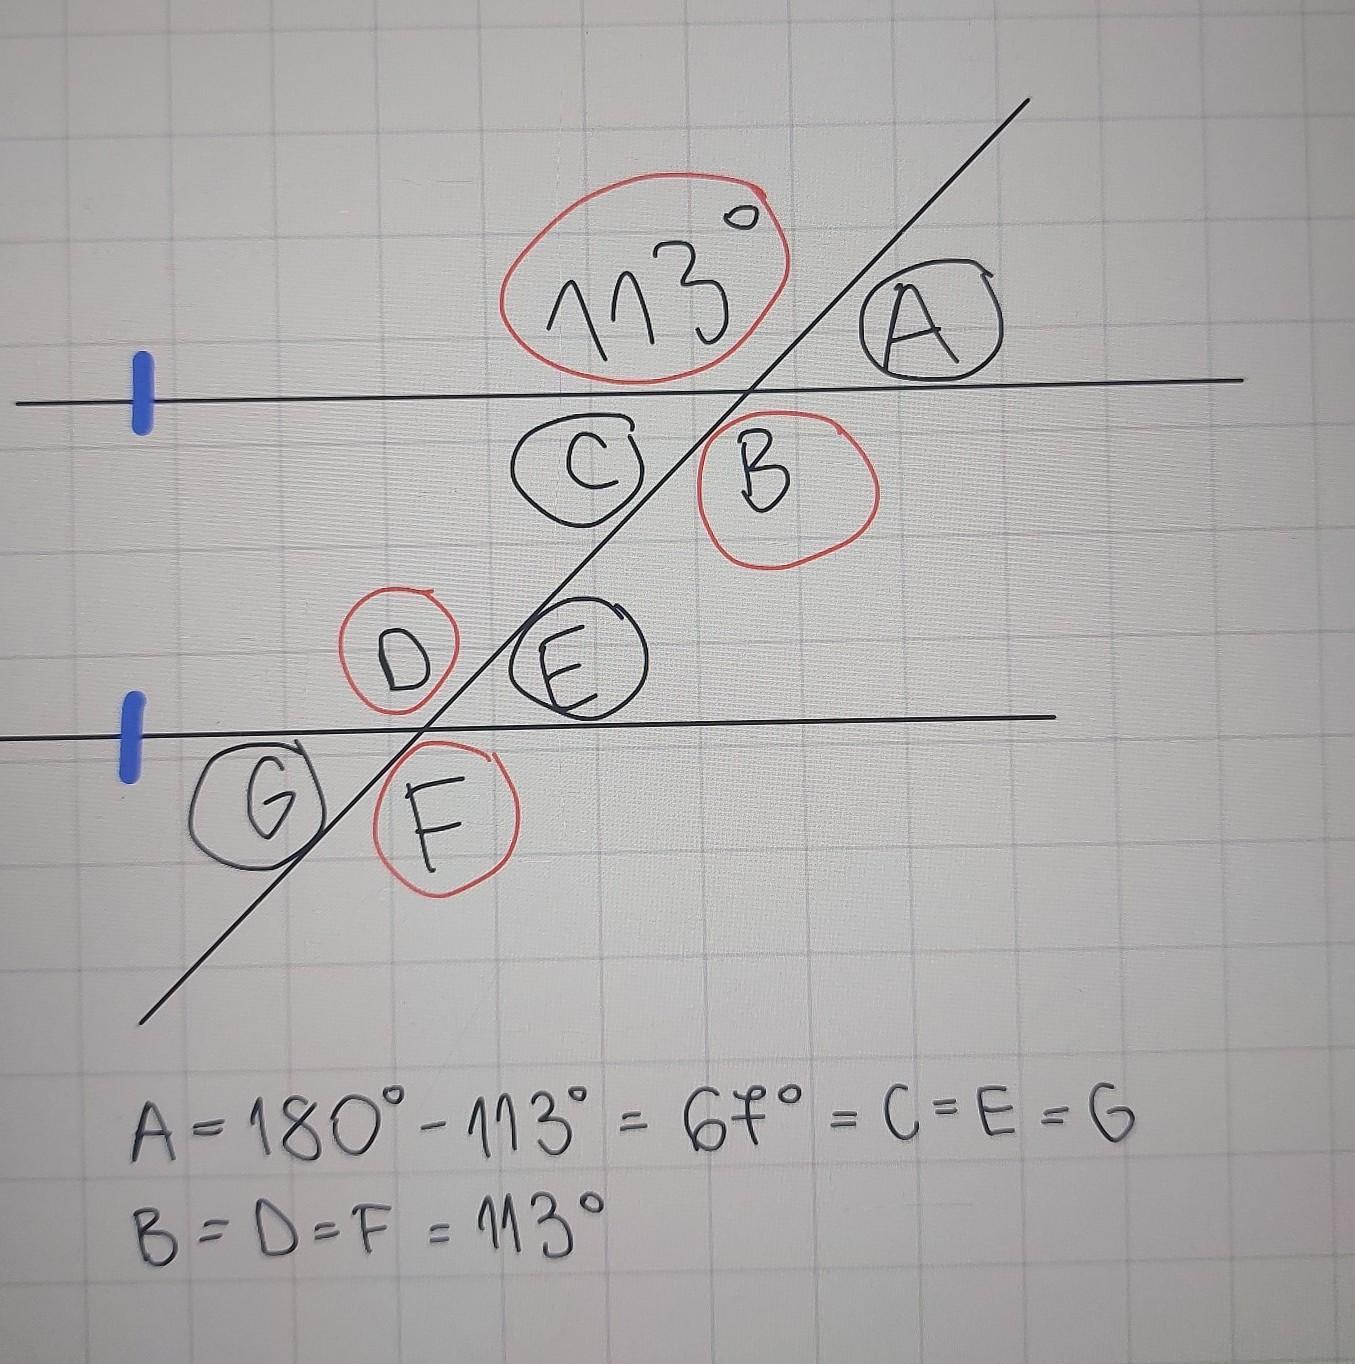 113°
A
C
B
D
E
G
F
A = 180° - 113° = 67° = C = E = G
B = D = F = 113°